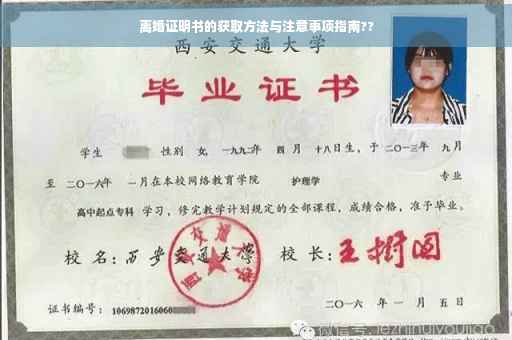 离婚证明书的获取方法与注意事项指南??
西安交通大学
毕业证书
学生 性别 女, 一九九二年 四月 十八日生, 于 二〇一三年 九月
至 二〇一六年 一月在本校网络教育学院 护理学 专业
高中起点专科 学习, 修完教学计划规定的全部课程, 成绩合格, 准予毕业。
校 名: 西安交通大学 校 长: 王树国
西安交通大学
证书编号: 1069872016060 二〇一六 年 一 月 五 日
微信号: lezhihuiyoujiao